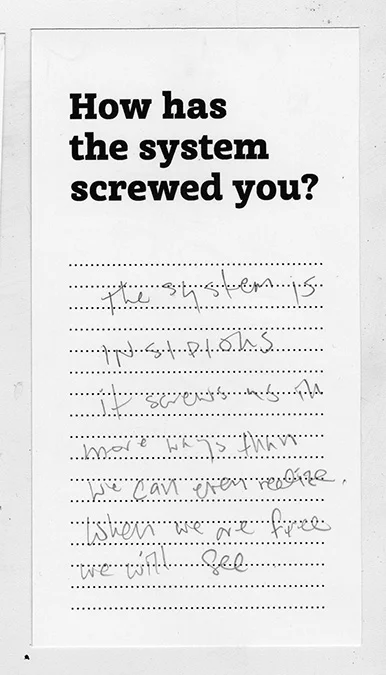 How has
the system
screwed you?
the system is
insidious
it screws us in
more ways than
we can even realize.
When we are free
we will see